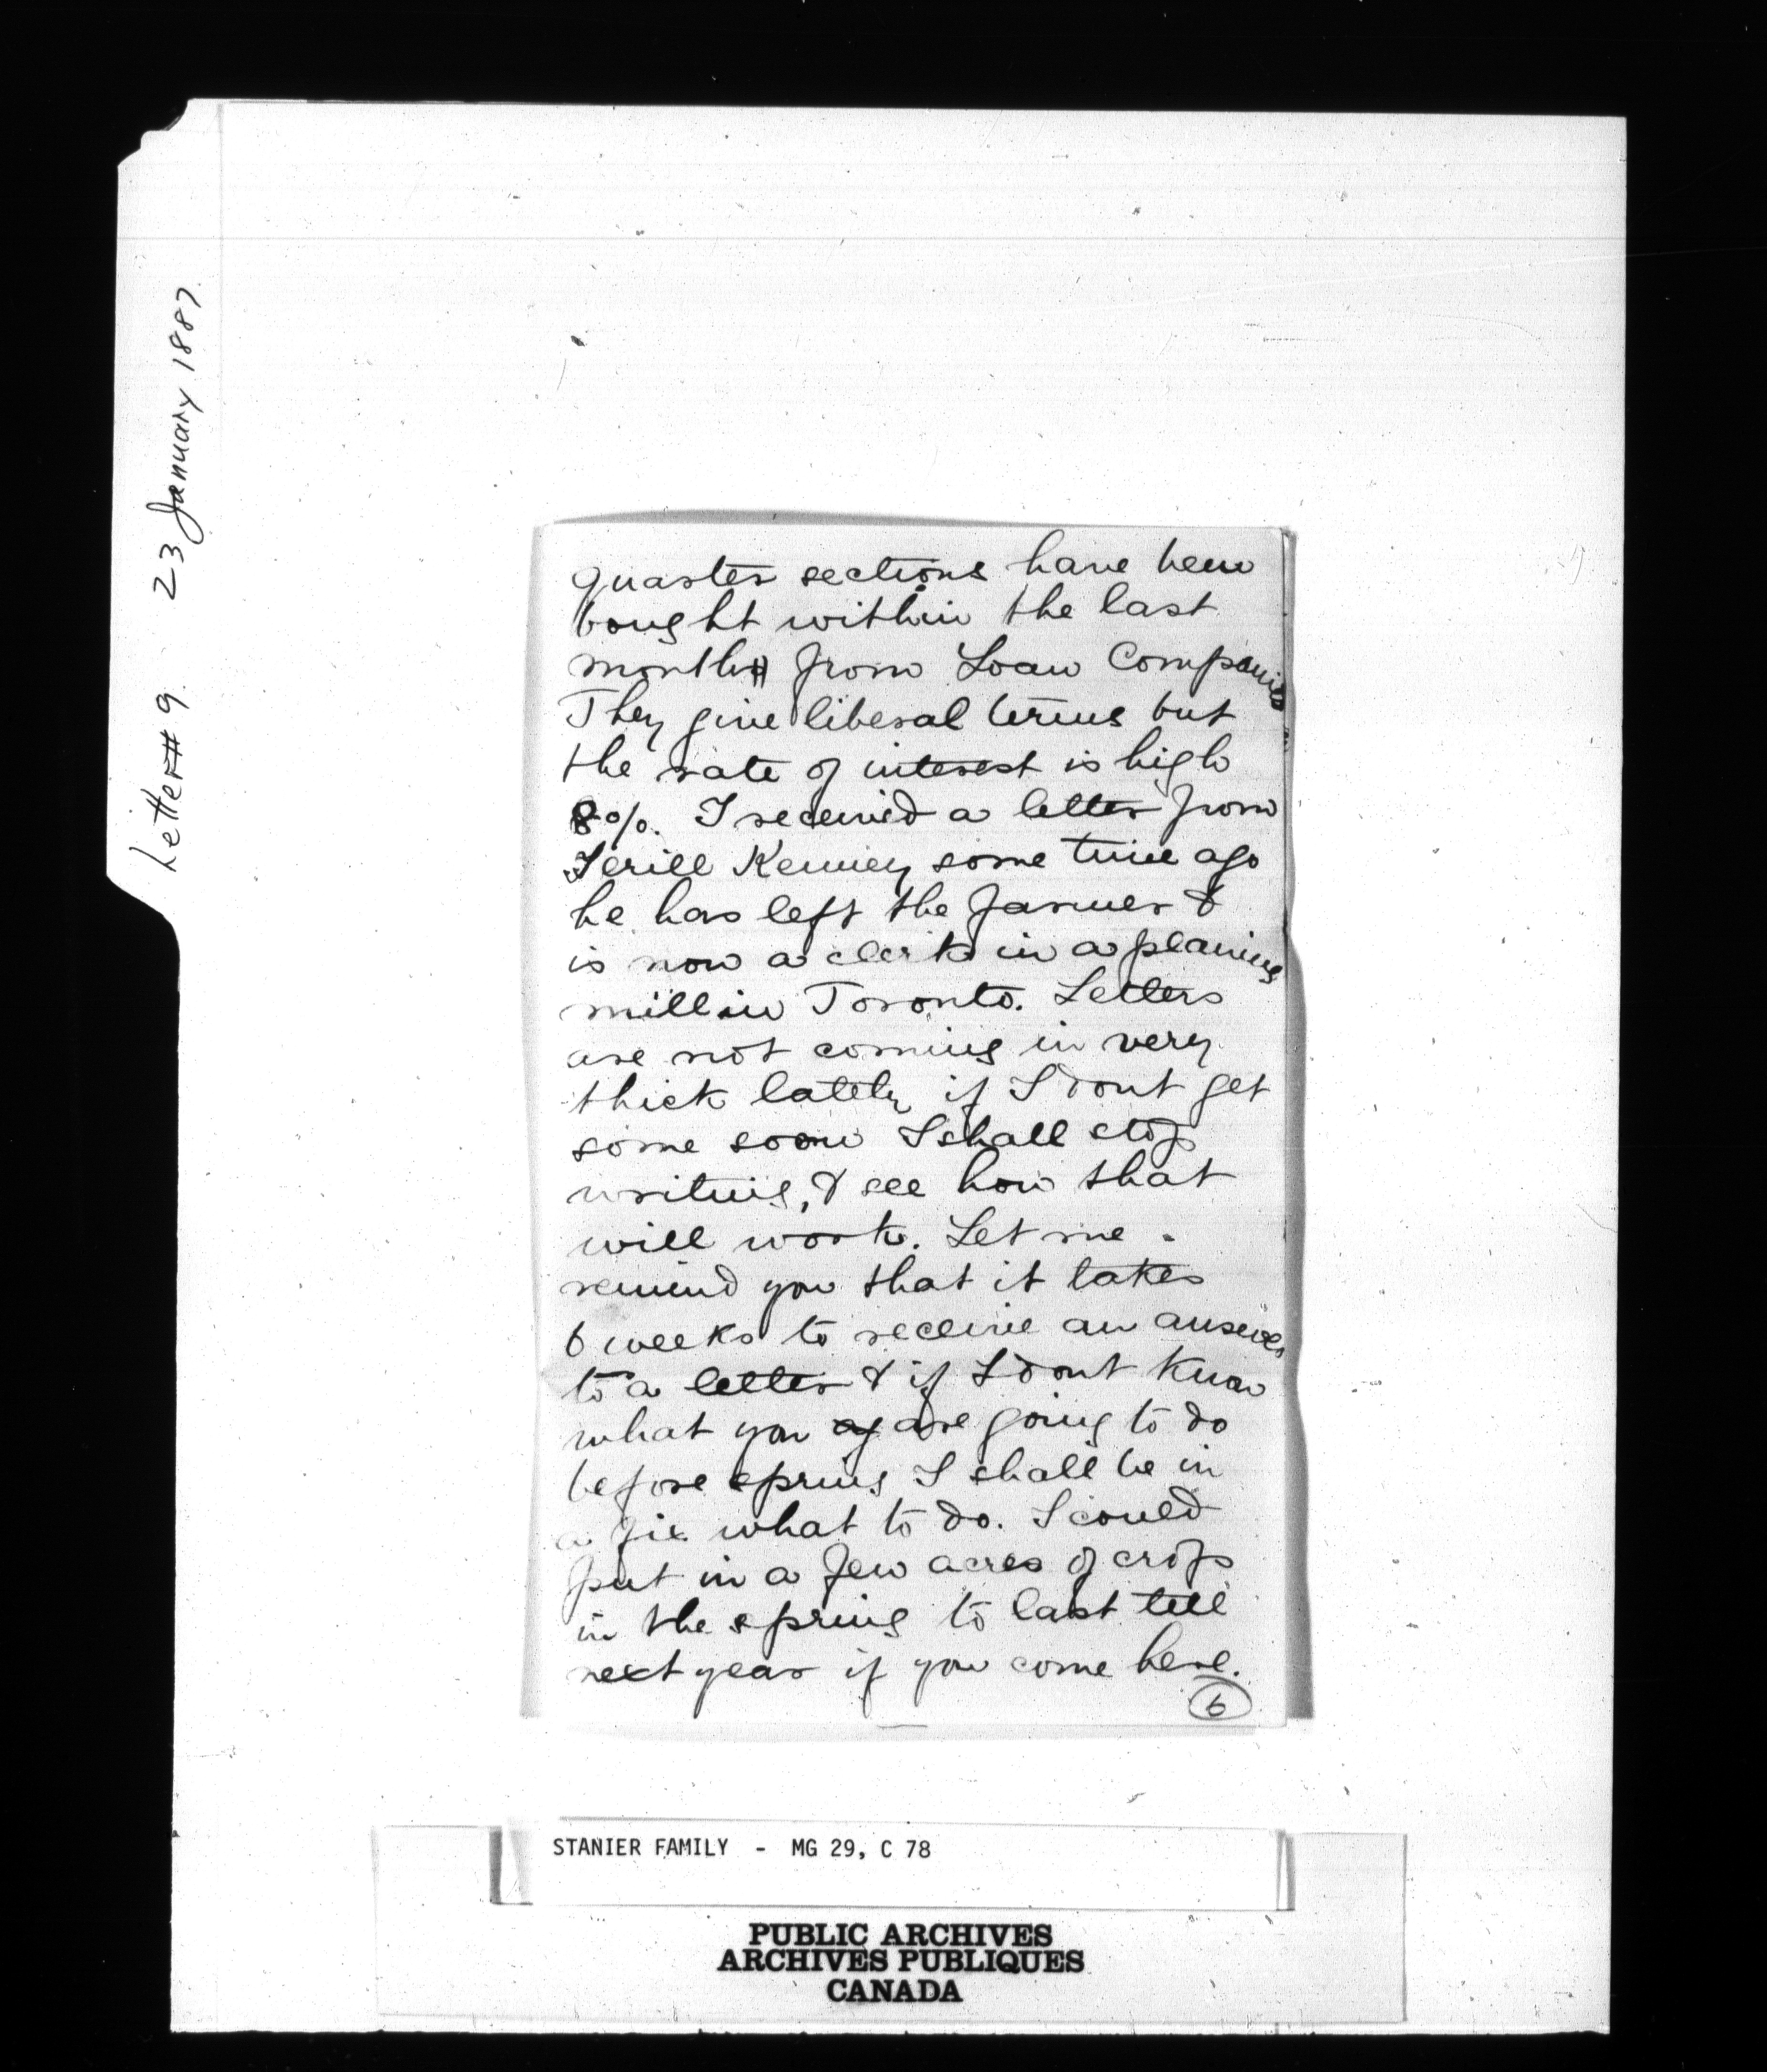 Letter # 9. 23 January 1887.
quarter sections have been
bought within the last
month from Loan Companies
They give liberal terms but
the rate of interest is high
8 o/o. I received a letter from
Kenney some time ago
he has left the farmer &
is now a clerk in a planing
mill in Toronto. Letters
are not coming in very
thick lately if I dont get
some soon I shall stop
writing, & see how that
will work. Let me
remind you that it takes
6 weeks to receive an answer
to a letter & if I dont know
what you are going to do
before spring I shall be in
a fix what to do. I could
put in a few acres of crops
in the spring to last till
next year if you come here.
6
STANIER FAMILY - MG 29, C 78
PUBLIC ARCHIVES
ARCHIVES PUBLIQUES
CANADA